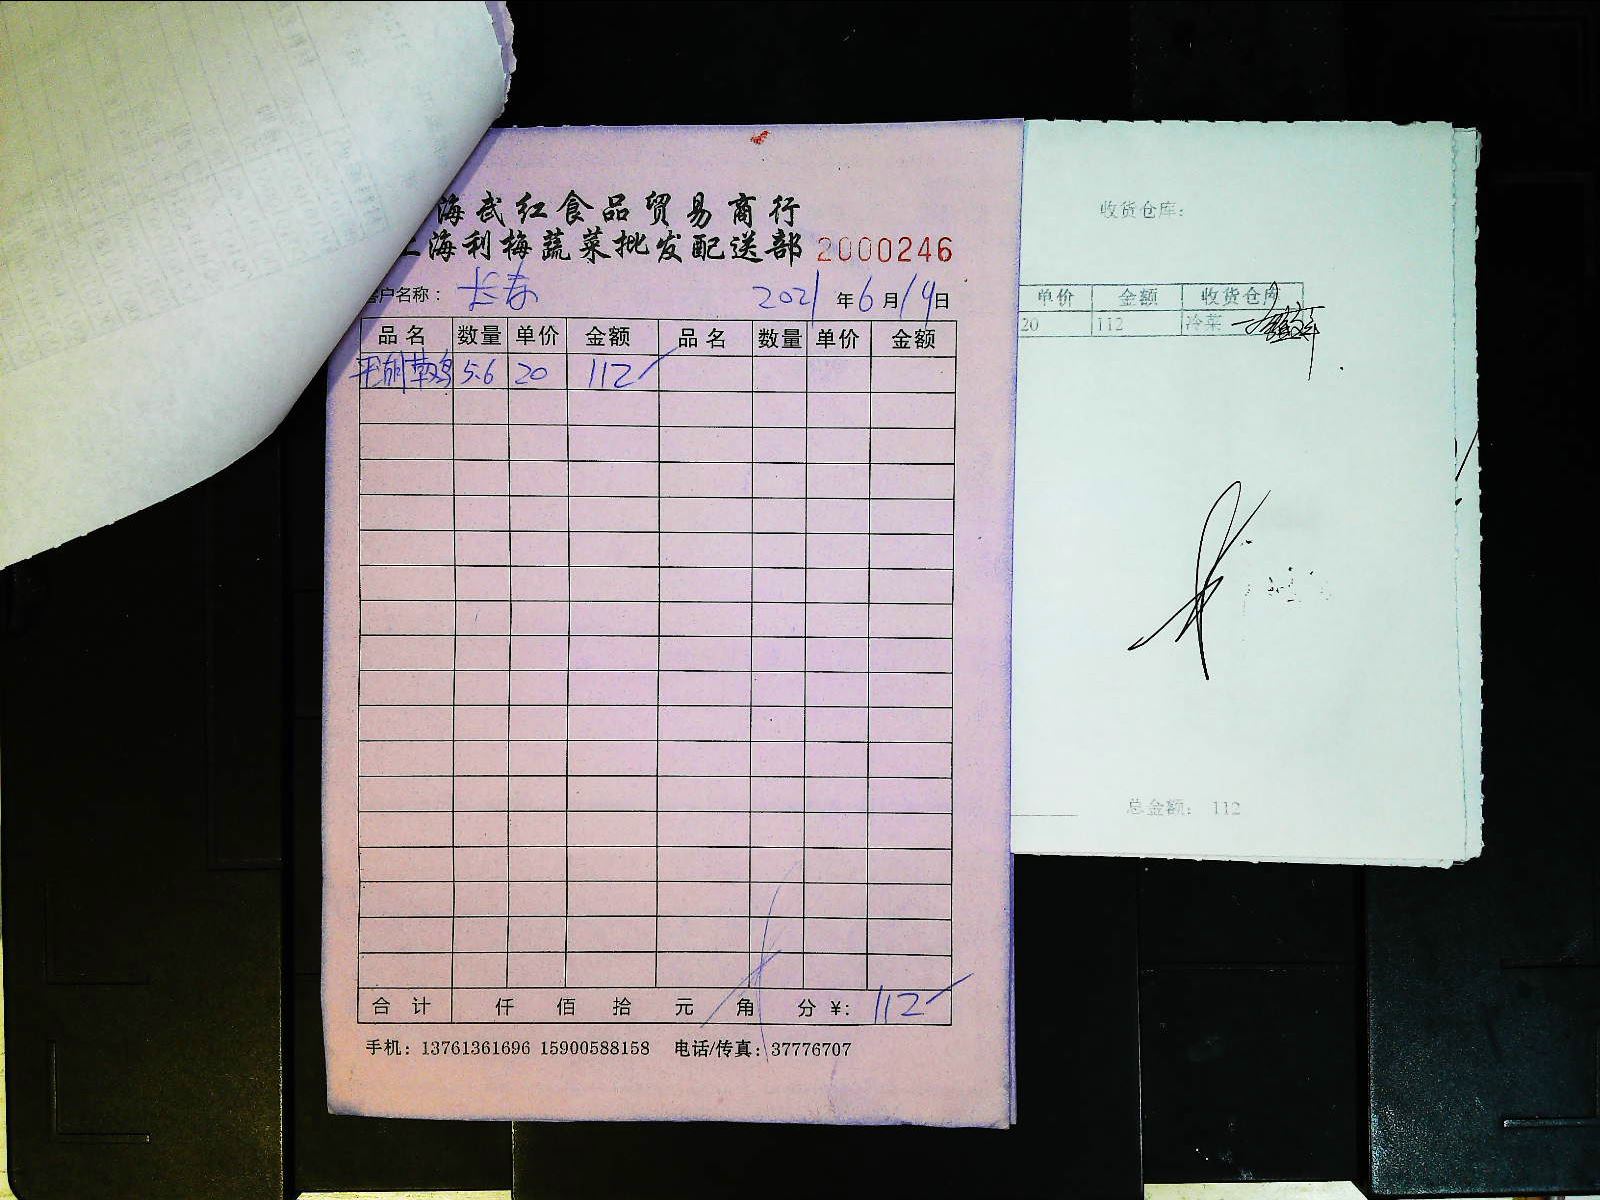 海武红食品贸易商行
上海利梅蔬菜批发配送部 2000246
客户名称： 长春 2021年6月19日
品名 数量 单价 金额 品名 数量 单价 金额
草鸡 5.6 20 112
合计 仟 佰 拾 元 角 分 ¥: 112
手机：13761361696 15900588158 电话/传真：37776707
收货仓库:
单价 金额 收货仓库
20 112 冷菜
总金额: 112